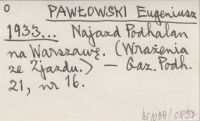 o
PAWŁOWSKI Eugeniusz
1933... Najazd Podhalan
na Warszawę. (Wrażenia
ze Zjazdu.) — Gaz. Podh.
21, nr 16.